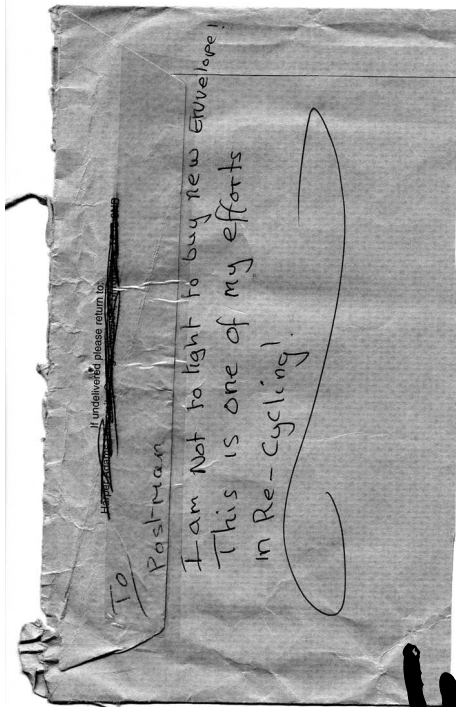 If undelivered please return to:
To
Post-man
I am Not to tight to buy new Envelope!
This is one of my efforts
In Re-Cycling!